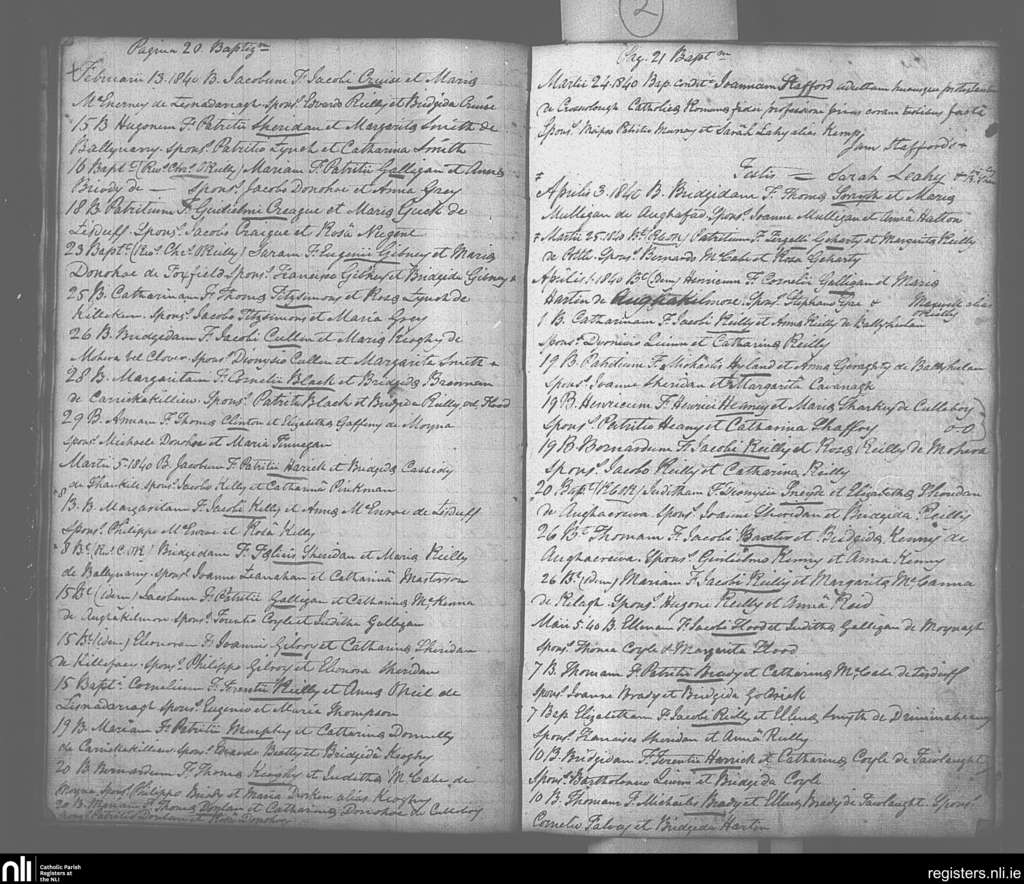 2
Pagina 20. Baptizm
Februarii 13. 1840 B. Jacobum F. Jacobi Cruise et Maria
McEnerney de Lisnadarragh Spons. Edvardo Reilly et Bridgida Cruise
15 B Hugonem F. Patritii Sheridan et Margarita Smith de
Ballynarry. Spons. Patritio Lynch et Catharina Smith
16 Bapt. (Revs. Chrs. OReilly) Mariam F. Patritii Galligan et Anna
Briody de — Spons. Jacobo Donohoe et Anna Grey
18 B Patritium F. Gulielmi Creague et Maria de
Lisduff Spons. Jacobo Creague et Rosa Nugent
23 Bapt. (Revs. Chrs. OReilly) Saram F. Eugenii Gibney et Maria
Donohoe de Foxfield Spons. Francisco Gibney et Bridgida Gibney
25 B. Catharinam F. Thoma Fitzsimons et Rosa Lynch de
Killeken. Spons. Jacobo Fitzsimons et Maria Grey
26 B. Bridgidam F. Jacobi Cullen et Maria Keoghy de
Mohera vel Clover. Spons. Dionysio Cullen et Margarita Smith
28 B. Margaritam F. Cornelii Black et Bridgida Brennan
de Carrickakillew. Spons. Patritio Black et Bridgida Reilly vel Flood
29 B. Annam F. Thoma Clinton et Elizabetha Gaffeny de Moyna
Spons. Michaele Donohoe et Maria Finnegan
Martii 5. 1840 B. Jacobum F. Patritii Harick et Bridgida Cassidy
de Spons. Jacobo Kelly et Catharina Pinkman
8 B. Margaritam F. Jacobi Kelly et Anna McEnroe de Lisduff
Spons. Philippo McEnroe et Rosa Kelly
8 Bt. Bridgedam F. Felicis Sheridan et Maria Reilly
de Ballynarry. Spons. Joanne Leanahan et Catharina Masterson
15 Bt. (idem) Jacobum F. Patritii Galligan et Catharina McKenna
de Aughakilmon Spons. Terentio Coyle et Juditha Galligan
15 Bt. (idem) Eleonoram F. Joannis Gilroy et Catharina Sheridan
de Spons. Philippo Gilroy et Elenora Sheridan
15 Bapt. Cornelium F. Terentii Reilly et Anna ONeil de
Lisnadarragh Spons. Eugenio et Maria Thompson
19 B. Mariam F. Patritii Murphy et Catharina Donnelly
de Carrickakillew. Spons. Edvardo Beatty et Bridgida Keoghy
20 B Bernardum F. Thoma Keoghy et Juditha McCabe de
Moyna Spons. Philippo Briody et Maria Durkin alias Keoghy
20 B. F. Thoma Donlan et Catharina Donohoe de Culleboy
Spons. Patritio Donlan et Rosa Donohoe
Pag. 21 Baptm
Martii 24. 1840 Bap. condit. Joannem Stafford
de Crosserlough Catholica Romana fidei professione prius coram testibus facta
Spons. Patritio Murray et Sarah Lahy alias Kemp
Jam Staffords
Testis = Sarah Leahy
Aprilis 3. 1840 B. Bridgidam F. Thoma Smyth et Maria
Mulligan de Aughafad. Spons. Joanne Mulligan et Anna Halton
Martii 25. 1840 Bt. Patritium F. Fergalli Goharty et Margarita Reilly
de Spons. Bernardo McCabe et Rosa Goharty
Aprilis 1840 Bt. (idem) Henricum F. Cornelii Galligan et Maria
Harten de Aughakilmore. Spons. Stephano & Margarita alias Reilly
1 B. Catharinam F. Jacobi Reilly et Anna Reilly de Ballyhelan
Spons. Dionisio Quinn et Catharina Reilly
19 B. Patritium F. Michaelis Hyland et Anna Geraghty de Ballyhelan
Spons. Joanne Sheridan et Margarita Cavanagh
19 B. Henricum F. Henrici Heaney et Maria Sharkey de Culleboy
Spons. Patritio Heany et Catharina Shaffry 0-0
19 B Bernardum F. Jacobi Reilly et Rosa Reilly de Mohera
Spons. Jacobo Reilly et Catharina Reilly
20 Bapt. Juditham F. Dionysii et Elizabetha Sheridan
de Aughacreeva. Spons. Joanne Sheridan et Bridgida Reilly
26 Bt. Thomam F. Jacobi Baxter et Bridgida Kenny de
Aughacreeva. Spons. Gulielmo Kenny et Anna Kenny
26 Bt. (idem) Mariam F. Jacobi Reilly et Margarita McCanna
de Kilagh Spons. Hugone Reilly et Anna Reid
Maii 5. 40 B. Ellenam F. Jacobi Flood et Juditha Galligan de Moynagh
Spons. Thoma Coyle & Margarita Flood
7 B. Thomam F. Patritii Brady et Catharina McCabe de Lisduff
Spons. Joanne Brady et Bridgida Goldrick
7 Bap Elizabetham F. Jacobi Reilly et Ellena Smyth de
Spons. Francisco Sheridan et Anna Reilly
10 B. Bridgidam F. Terentii Harrick et Catharina Coyle de Fairlaught
Spons. Bartholomeo Quinn et Bridgida Coyle
10 B. Thomam F. Michaelis Brady et Ellena Brady de Fawlaught. Spons.
Cornelio Falvey et Bridgida Hartin
nli Catholic Parish
Registers at
the NLI
registers.nli.ie